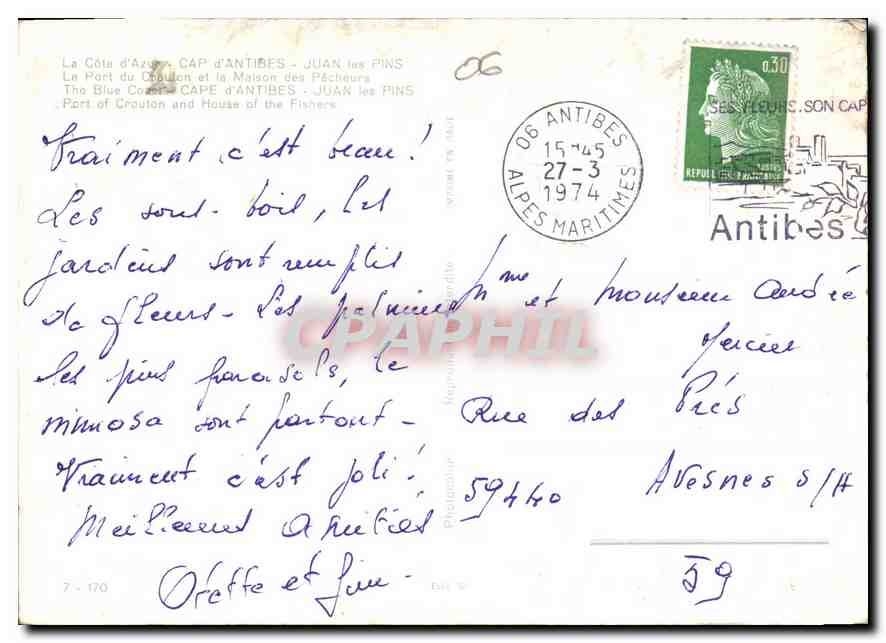 La Côte d'Azur - CAP d'ANTIBES - JUAN les PINS
Le Port du Crouton et la Maison des Pêcheurs
The Blue Coast - CAPE d'ANTIBES - JUAN les PINS
Port of Crouton and House of the Fishers
06
0,30
POSTES
REPUBLIQUE FRANÇAISE
06 ANTIBES
15-45
27-3
1974
ALPES MARITIMES
SES FLEURS. SON CAP
Antibes
Vraiment c'est beau!
Les sous-bois, les
jardins sont remplis
de fleurs - Les palmiers
les pins parasols, le
mimosa sont partout -
Vraiment c'est joli!
Meilleures amitiés
et
Mme et Monsieur André
Mercier
Rue des Prés
59440 Avesnes s/H
59
CPAPHIL
7 - 170